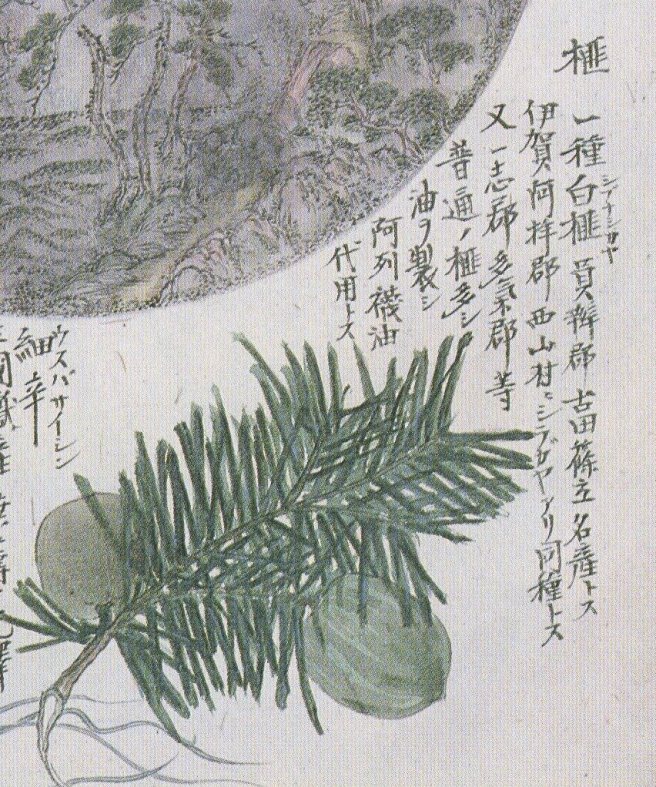 榧
一種白榧員辨郡古田篠立名産トス
伊賀阿拝郡西山村ニシブガヤアリ同種トス
又一志郡多気郡等
普通ノ榧多シ
油ヲ製シ
阿列襪油
代用トス
ウスバサイシン
細辛